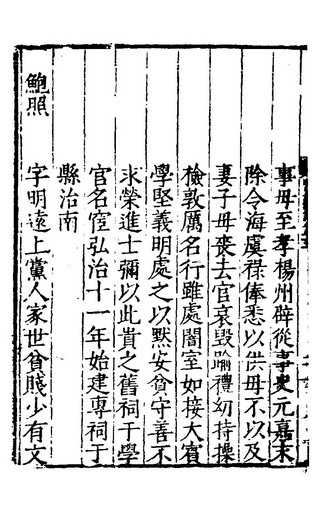 事母至孝楊州辟從事史元嘉末
除令海虞祿俸悉以供母不以及
妻子母喪去官哀毀踰禮初持操
檢敦厲名行雖處闇室如接大賓
學堅義明處之以默安貧守善不
求榮進士彌以此貴之舊祠于學
官名宦弘治十一年始建專祠于
縣治南
鮑照　字明遠上黨人家世貧賤少有文